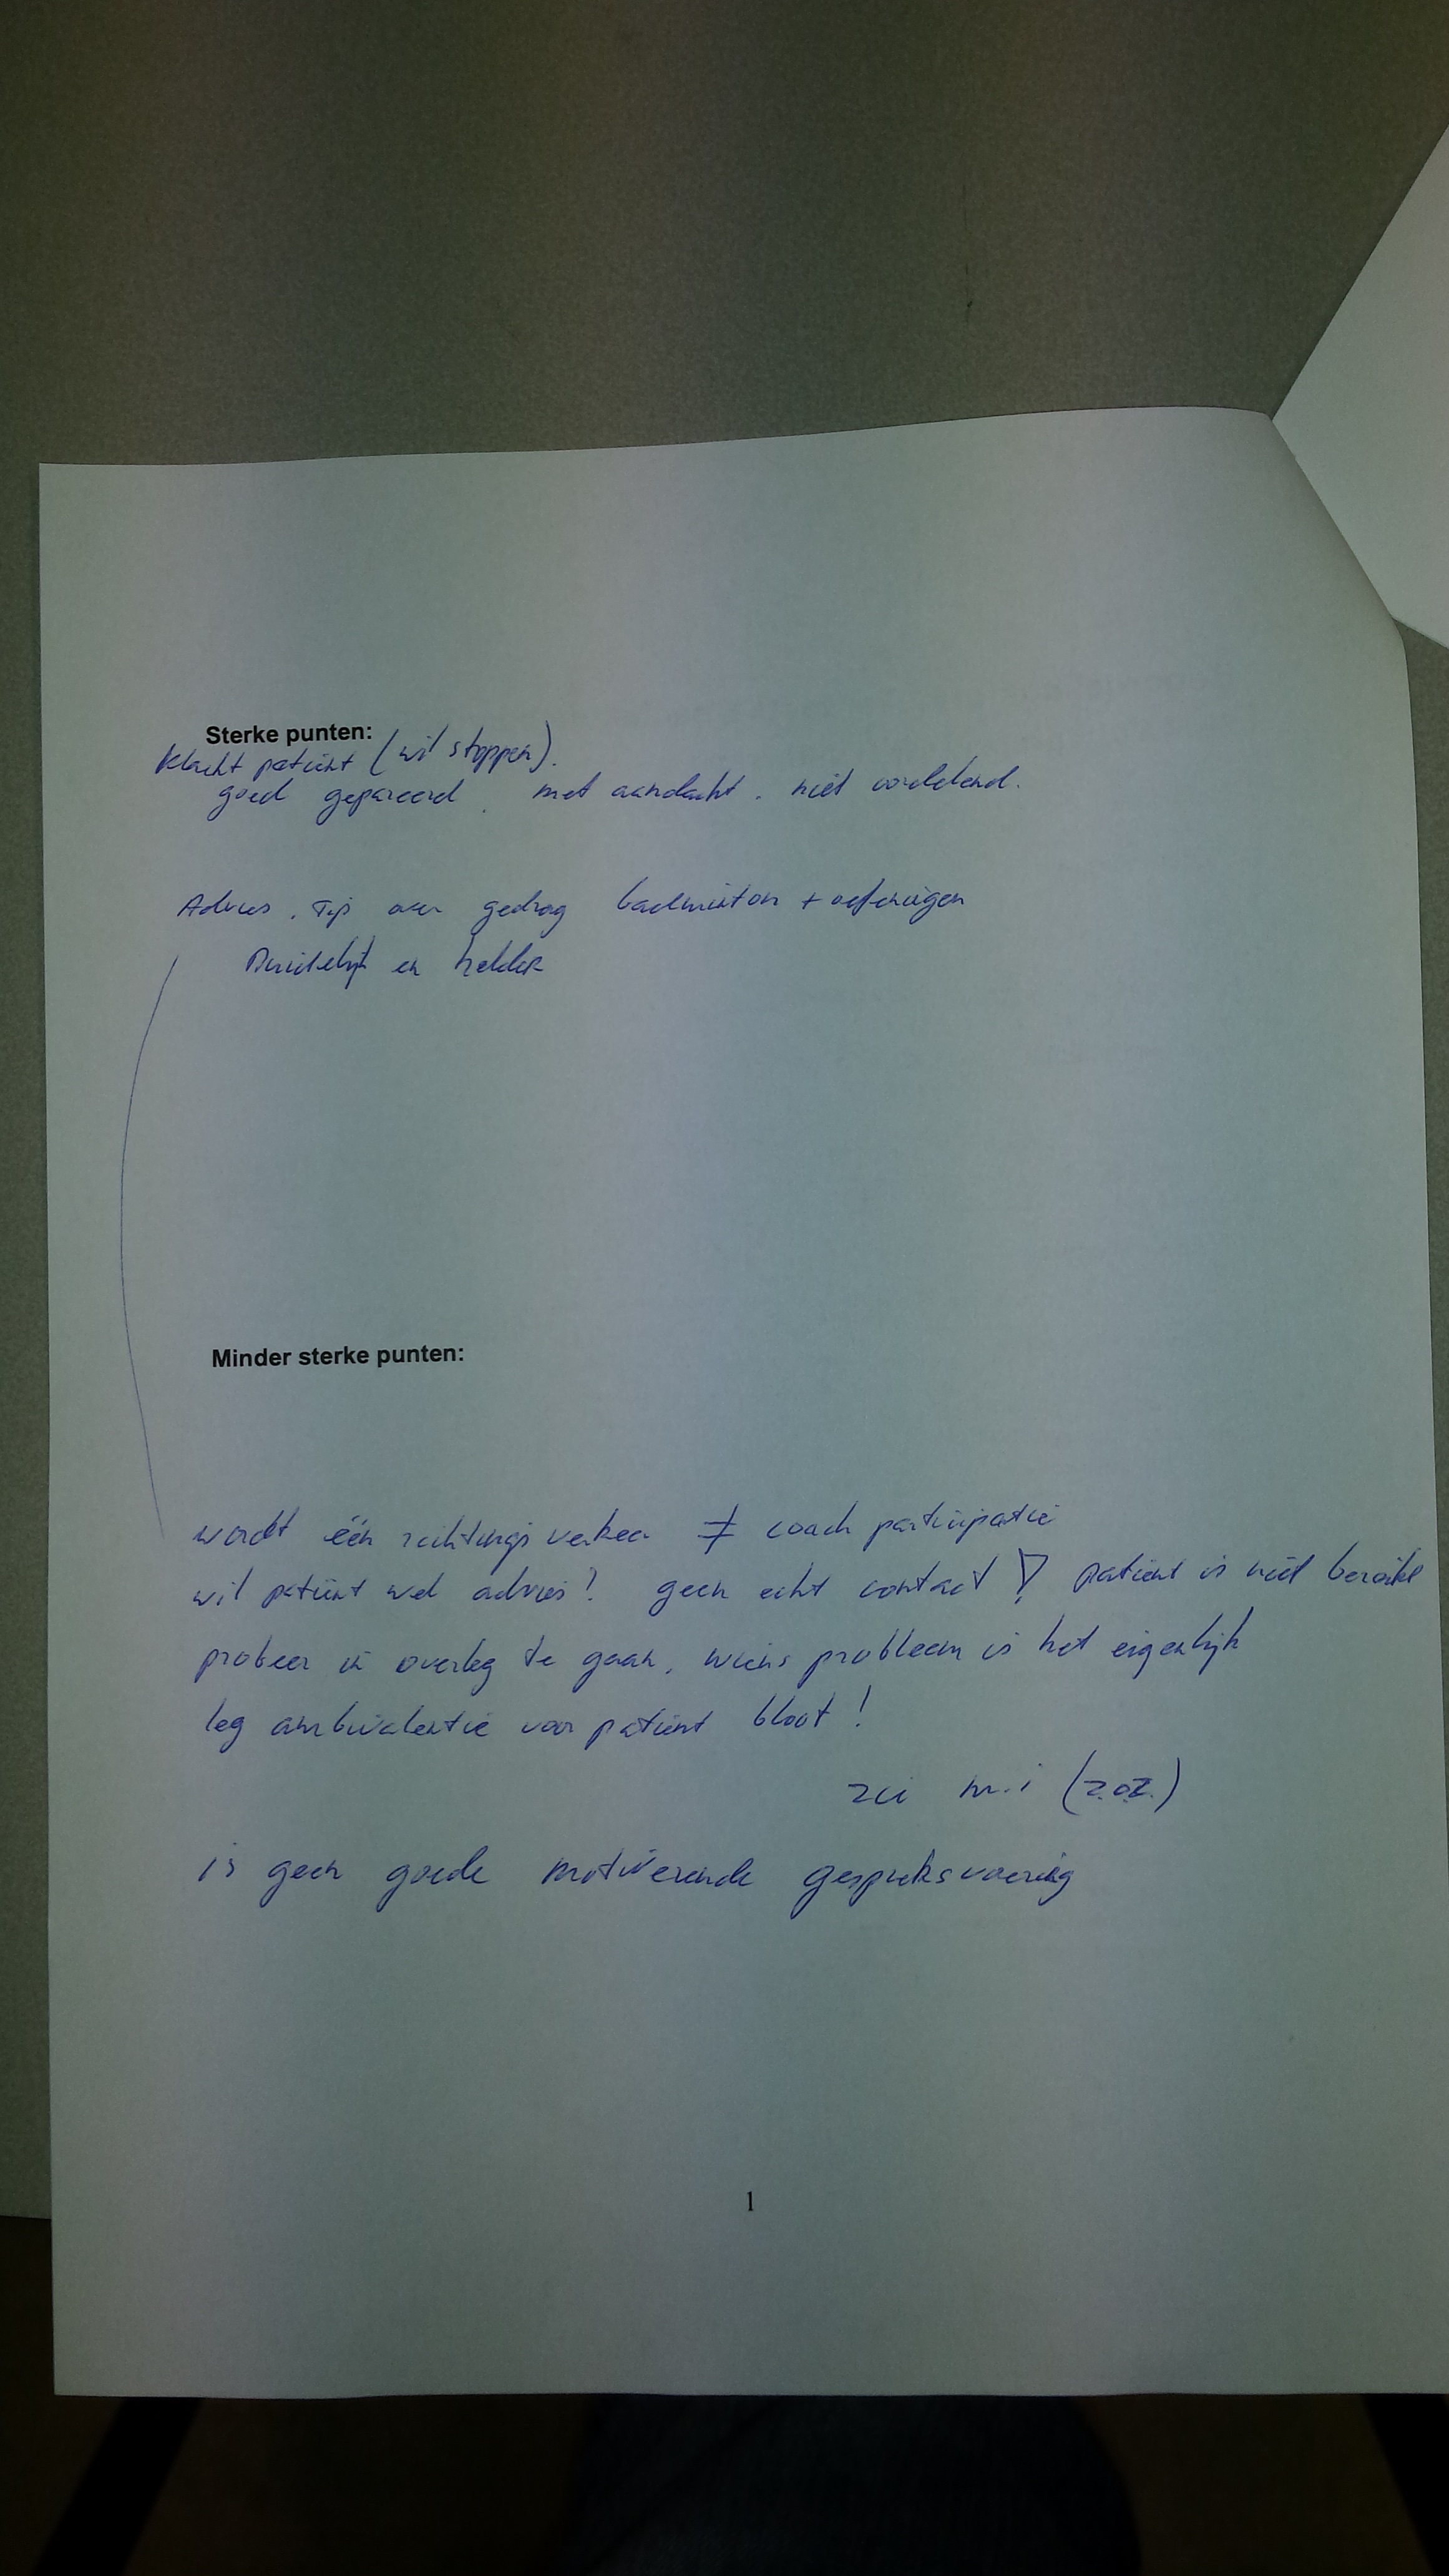 Sterke punten:
klacht patiënt (wil stoppen).
goed gepareerd. met aandacht. niet oordelend.
Advies. Tip over gedrag badminton + oefeningen
Duidelijk en helder
Minder sterke punten:
wordt één richtings verkeer ≠ coach participatie
wil patiënt wel advies? geen echt contact ! patient is niet
probeer in overleg te gaan, wiens probleem is het eigenlijk
leg ambivalentie voor patiënt bloot!
m.i (z.o.z.)
is geen goede motiverende gespreksvoering
1